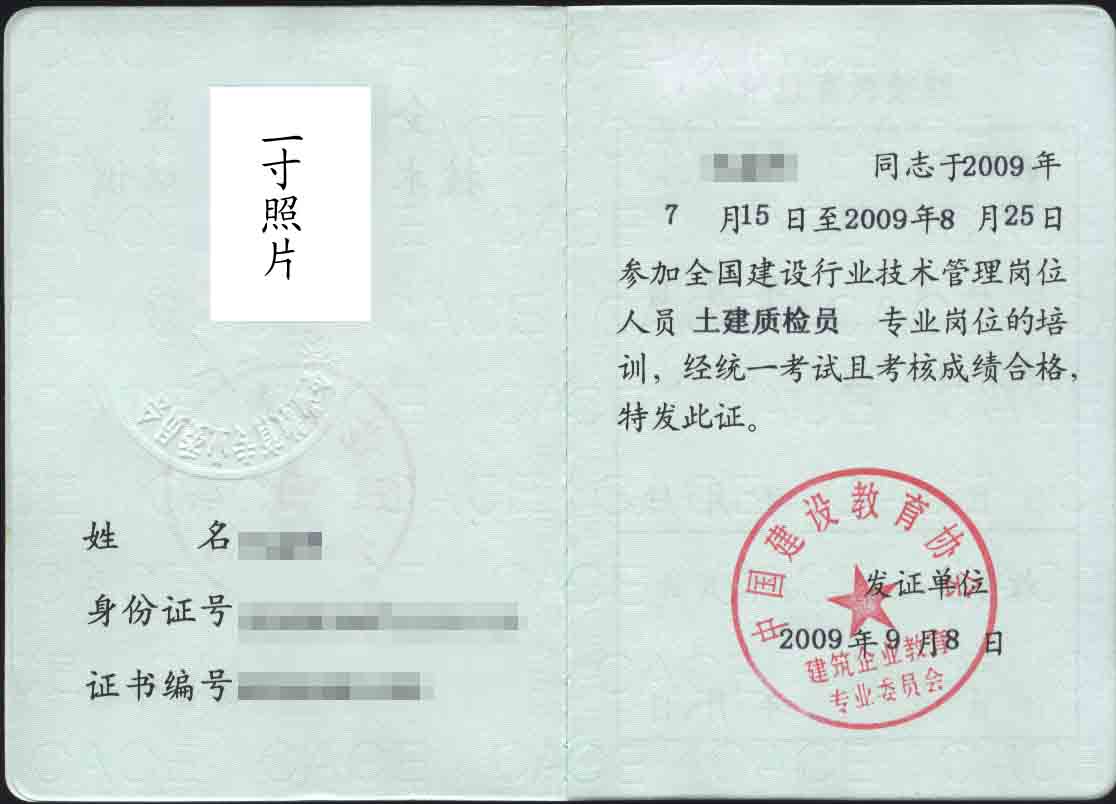 一寸照片
姓 名
身份证号
证书编号
同志于2009年
7月15日至2009年8月25日
参加全国建设行业技术管理岗位
人员 土建质检员 专业岗位的培
训，经统一考试且考核成绩合格，
特发此证。
中国建设教育协会
发证单位
2009年9月8日
建筑企业教育
专业委员会